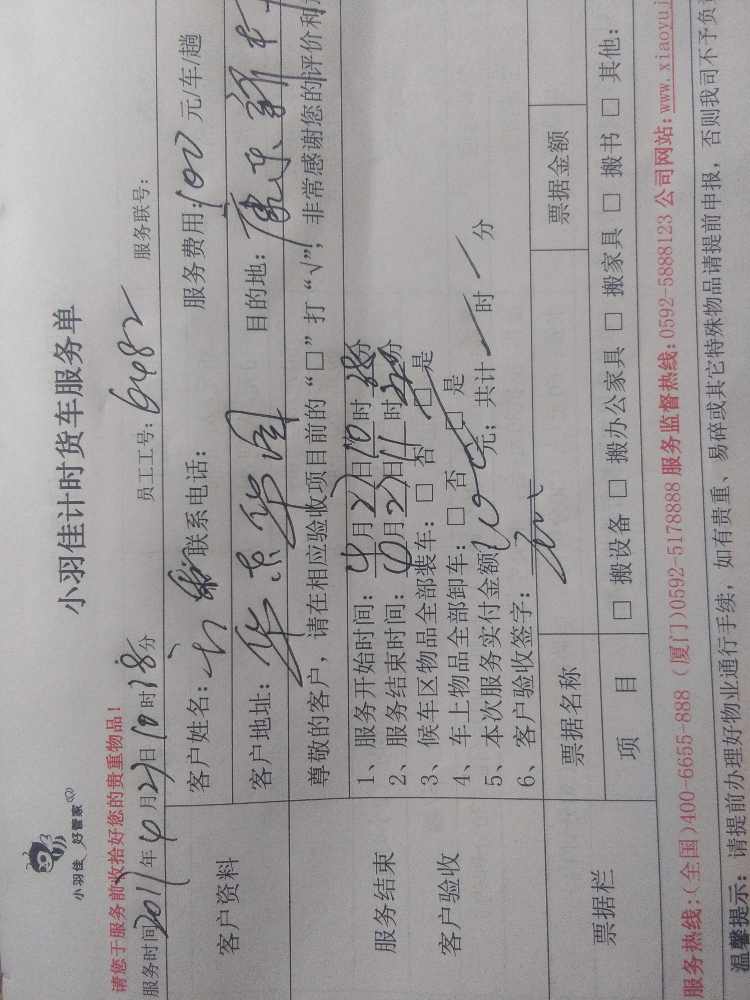 小羽佳 好管家
小羽佳计时货车服务单
请您于服务前收拾好您的贵重物品!
服务时间2011年4月27日10时38分 员工工号:6482 服务联号:
客户资料
客户姓名: 联系电话: 服务费用:100元/车/趟
客户地址:华 华园 目的地:康乐新村
服务结束
客户验收
尊敬的客户,请在相应验收项目前的“□”打“√”,非常感谢您的评价和
1、服务开始时间:4月27日10时38分
2、服务结束时间:4月27日11时20分
3、候车区物品全部装车:□ 否 □ 是
4、车上物品全部卸车:□ 否 □ 是
5、本次服务实付金额100元;共计 时 分
6、客户验收签字:
票据栏
票据名称 票据金额
项 目 □ 搬设备 □ 搬办公家具 □ 搬家具 □ 搬书 □ 其他:
服务热线:(全国)400-6655-888 (厦门)0592-5178888 服务监督热线:0592-5888123 公司网站:www.xiaoyuj
温馨提示: 请提前办理好物业通行手续,如有贵重、易碎或其它特殊物品请提前申报,否则我司不予负责